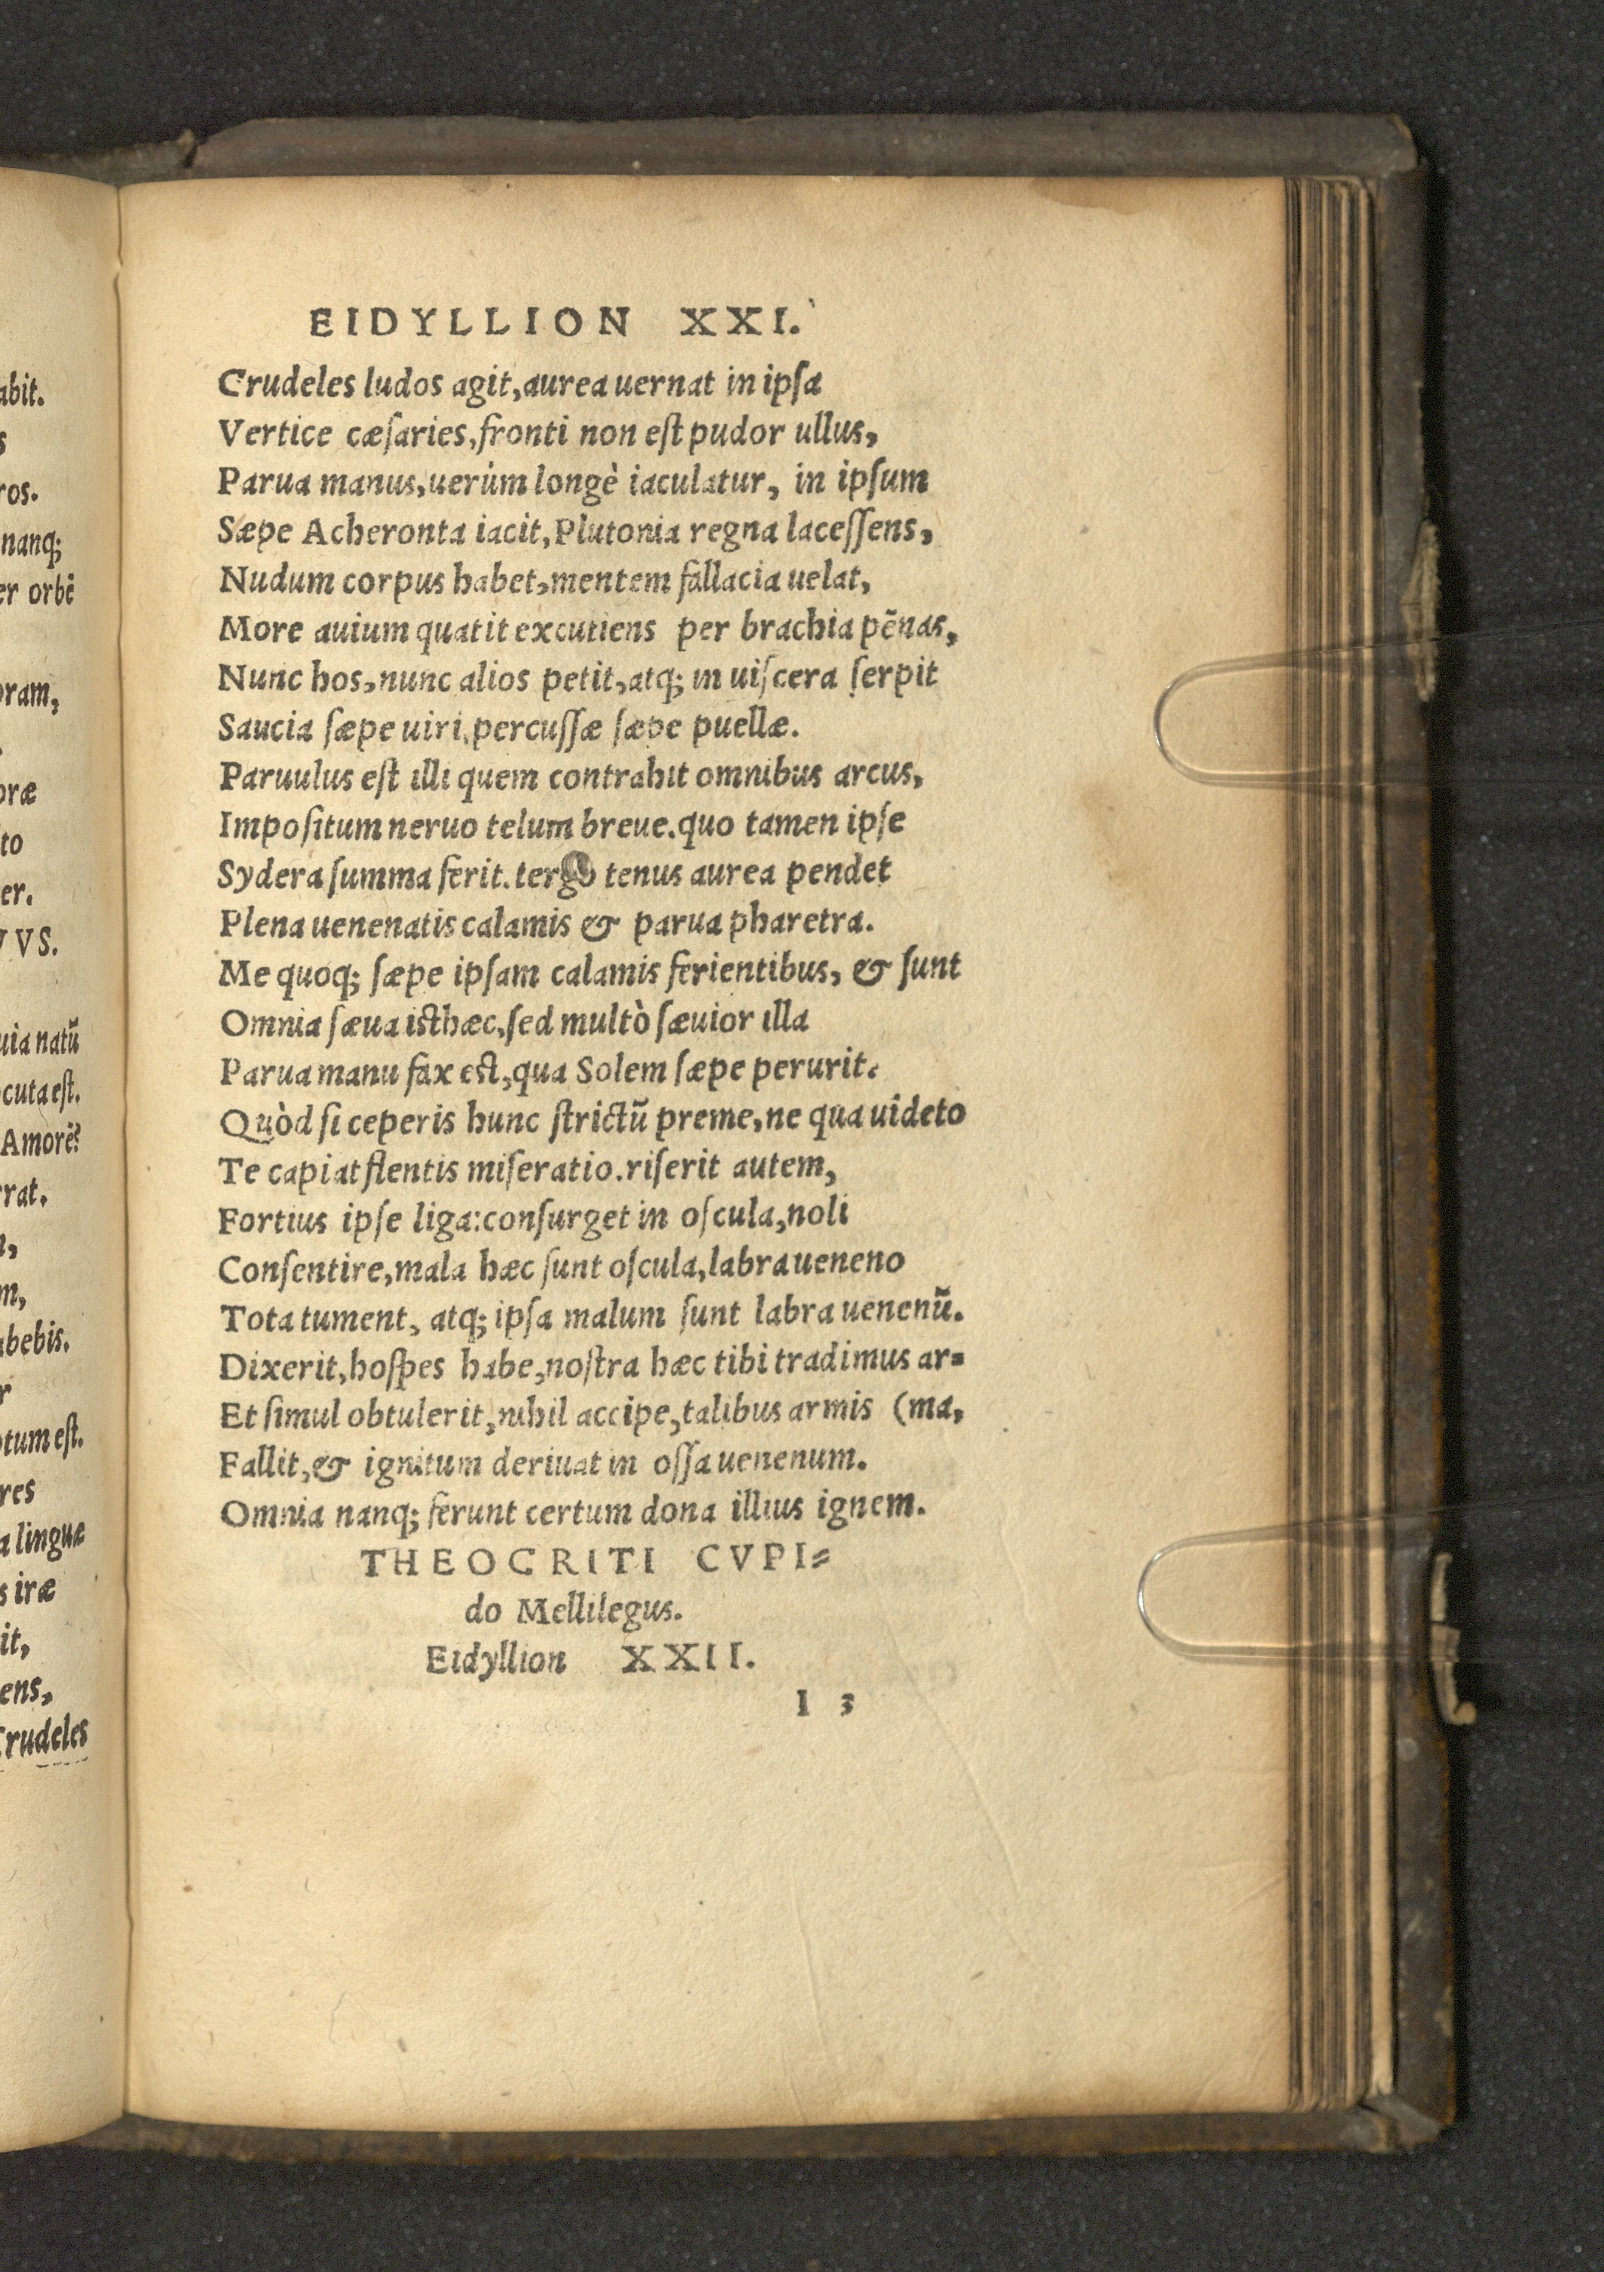 EIDYLLION XXI.
Crudeles ludos agit, aurea uernat in ipsa
Vertice cæsaries, fronti non est pudor ullus,
Parua manus, uerùm longè iaculatur, in ipsum
Sæpe Acheronta iacit, Plutonia regna lacessens,
Nudum corpus habet, mentem fallacia uelat,
More auium quatit excutiens per brachia pēnas,
Nunc hos, nunc alios petit, atq; in uiscera serpit
Saucia sæpe uiri, percussæ sæpe puellæ.
Paruulus est illi quem contrahit omnibus arcus,
Impositum neruo telum breue. quo tamen ipse
Sydera summa ferit. tergo tenus aurea pendet
Plena uenenatis calamis & parua pharetra.
Me quoq; sæpe ipsam calamis ferientibus, & sunt
Omnia sæua isthæc, sed multò sæuior illa
Parua manu fax est, qua Solem sæpe perurit.
Quòd si ceperis hunc strictū preme, ne qua uideto
Te capiat flentis miseratio. riserit autem,
Fortius ipse liga: consurget in oscula, noli
Consentire, mala hæc sunt oscula, labra ueneno
Tota tument, atq; ipsa malum sunt labra uenenū.
Dixerit, hospes habe, nostra hæc tibi tradimus ar=
Et simul obtulerit, nihil accipe, talibus armis (ma,
Fallit, & ignitum deriuat in ossa uenenum.
Omnia nanq; ferunt certum dona illius ignem.
THEOCRITI CVPI=
do Mellilegus.
Eidyllion XXII.
I 3
abit.
s
ros.
nanq;
er orbē
oram,
.
oræ
to
er.
VVS.
uia natū
ocuta est.
Amorē?
rrat.
m,
abebis.
r
otum est.
res
a linguæ
s iræ
it,
ens,
Crudeles